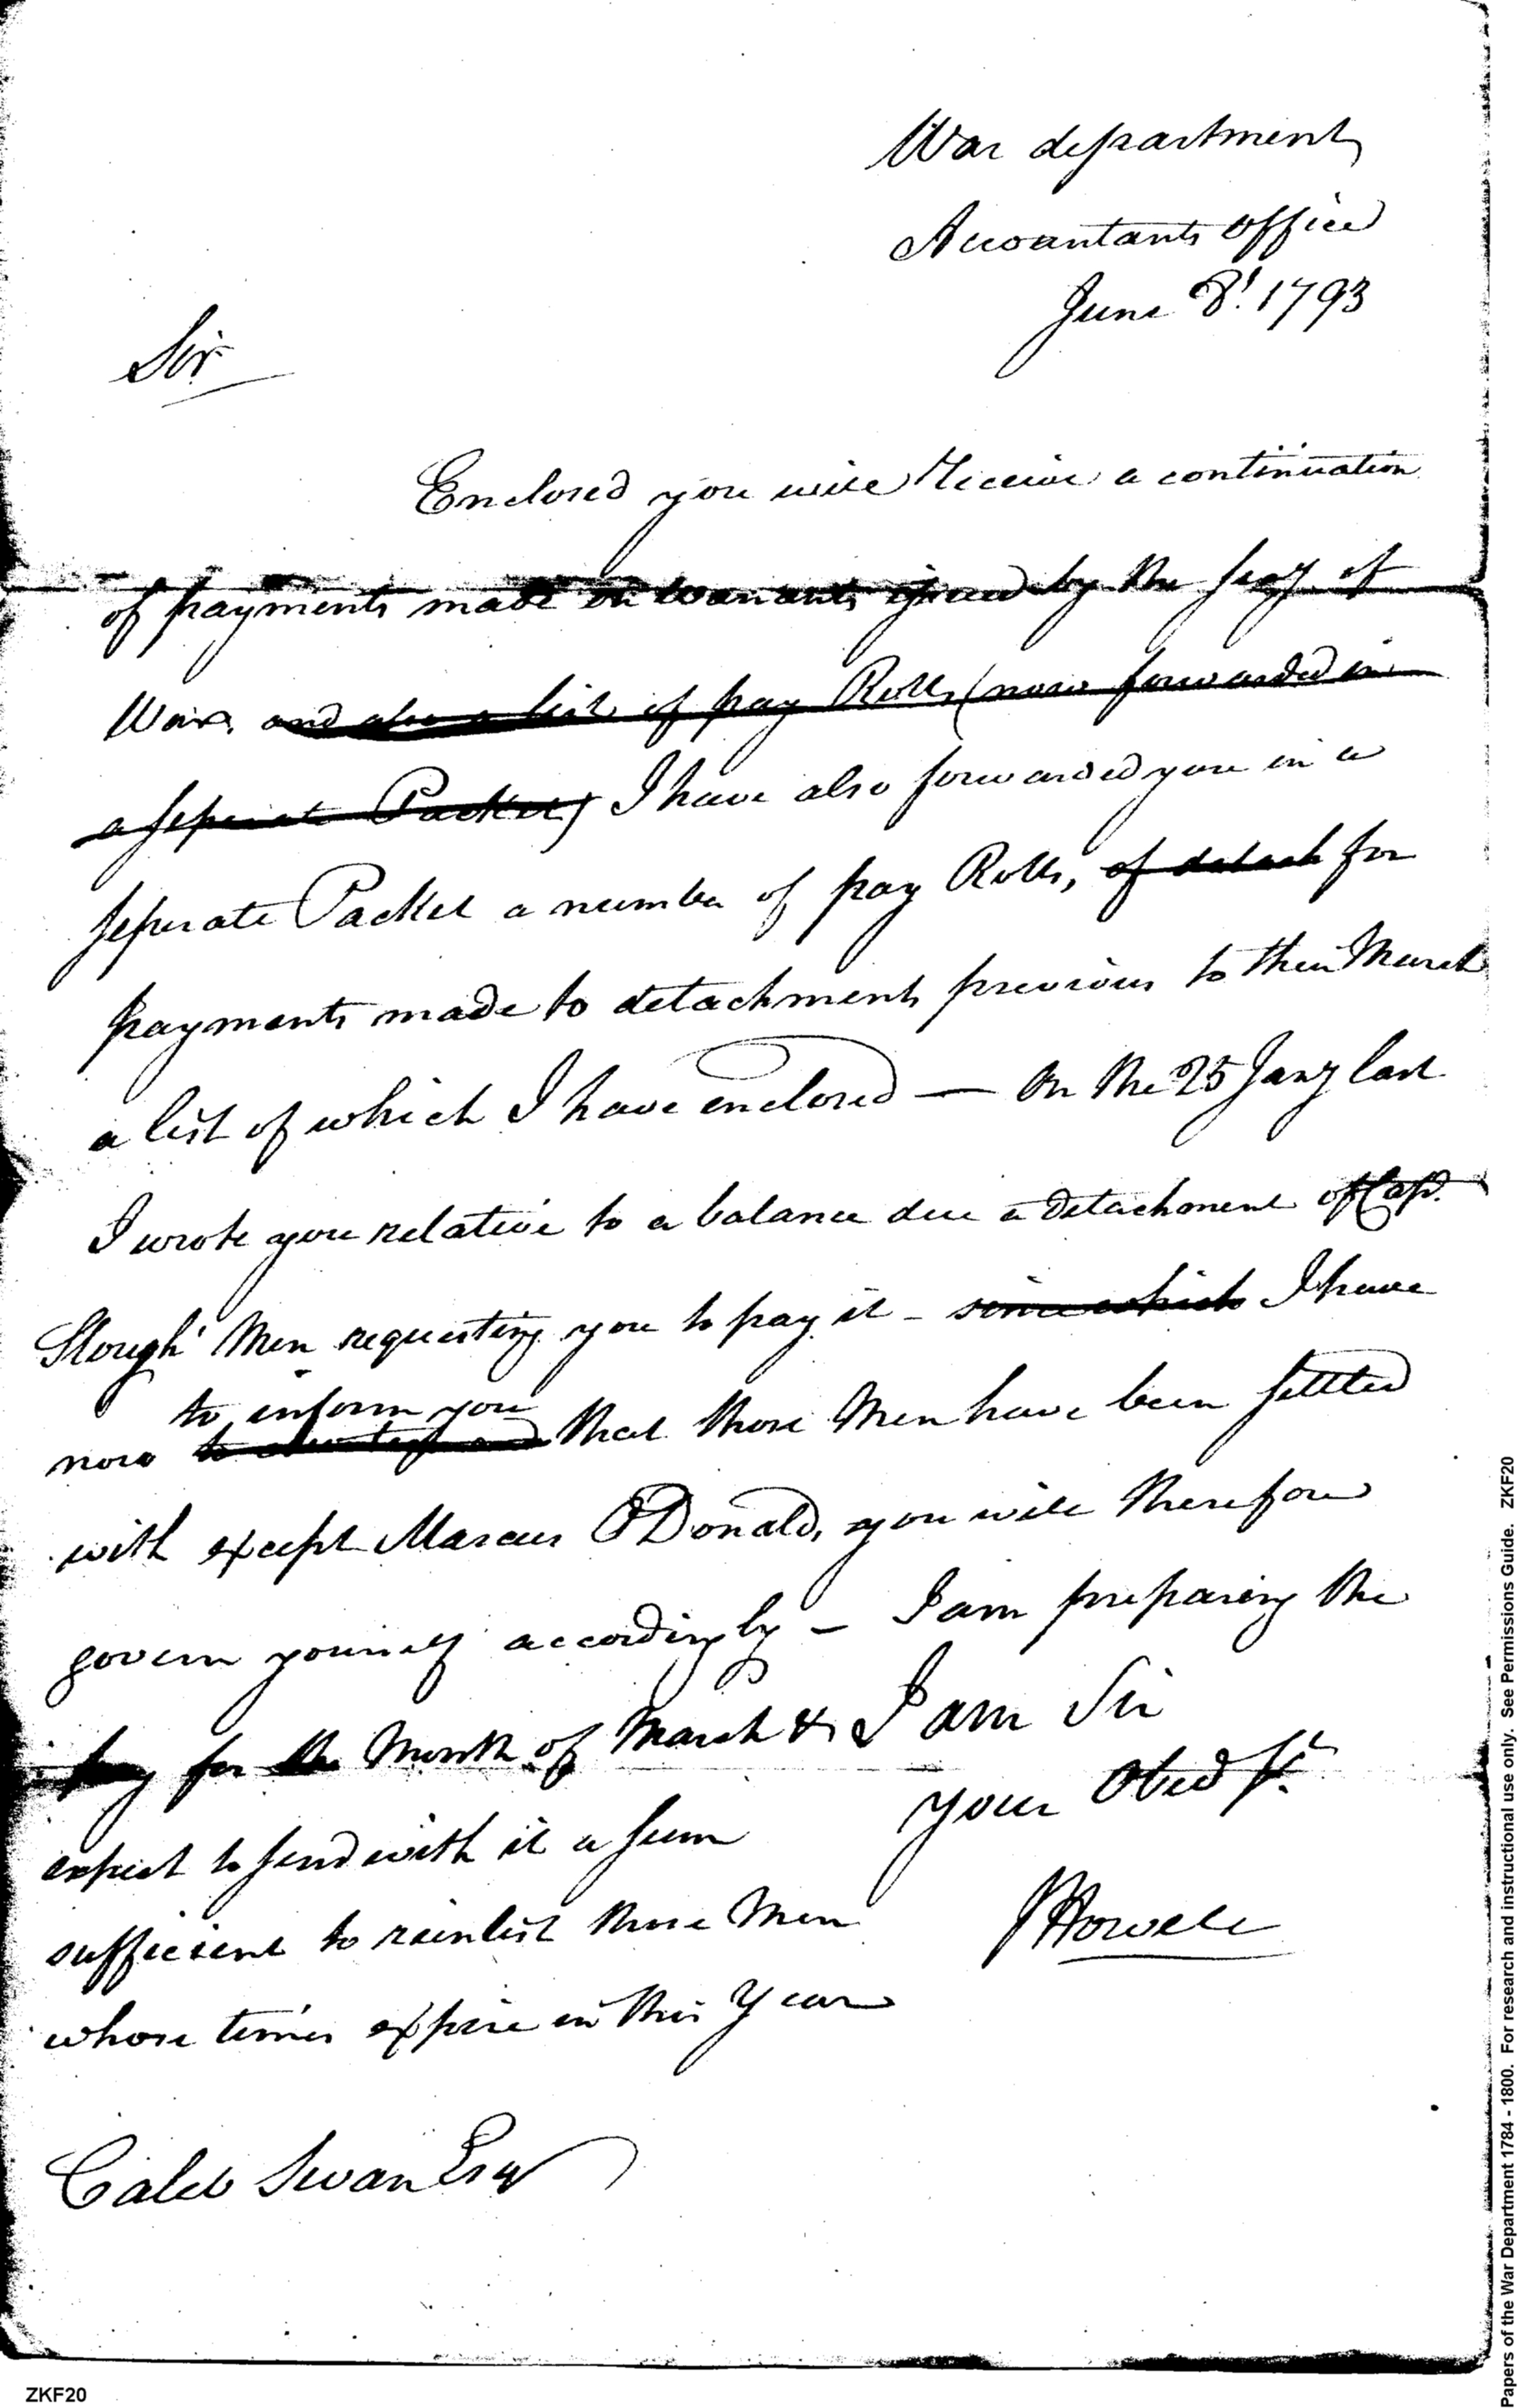 War department
Accountants office
June 8! 1793
Sir
Enclosed you will receive a continuation
of payments made on warrants issued by the Secy of
War, and also a list of pay Rolls (now forwarded in
a seperate Packet) I have also forwarded you in a
seperate Packet a number of pay Rolls, of detach for
payments made to detachments previous to their March
a list of which I have enclosed — On the 25 Jany last
I wrote you relative to a balance due a detachment of Capt.
Slough' Men requesting you to pay it - since which I have
to inform you
now that those Men have been settled
with except Marcus ODonald, you will therefore
govern yourself accordingly - I am preparing the
pay for the Month of March & I am Sir
your Obed St.
expect to send with it a sum
sufficient to reinlist those Men
JHowell
whose times expire in this Year
Caleb Swan Esqr
ZKF20
Papers of the War Department 1784 - 1800. For research and instructional use only. See Permissions Guide. ZKF20